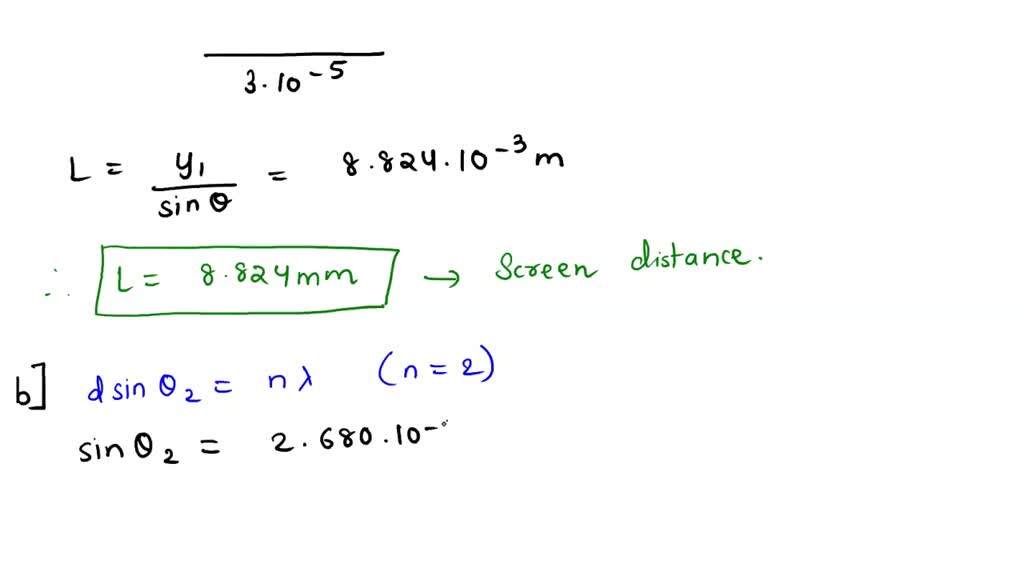 3.10⁻⁵
L = y₁ / sin θ = 8.824.10⁻³ m
∴ L = 8.824 mm → Screen distance.
b] d sin θ₂ = nλ (n = 2)
sin θ₂ = 2.680.10⁻